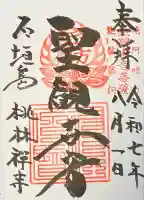 奉拝
令和七年
八月一日
聖観世音
石垣島
桃林禅寺